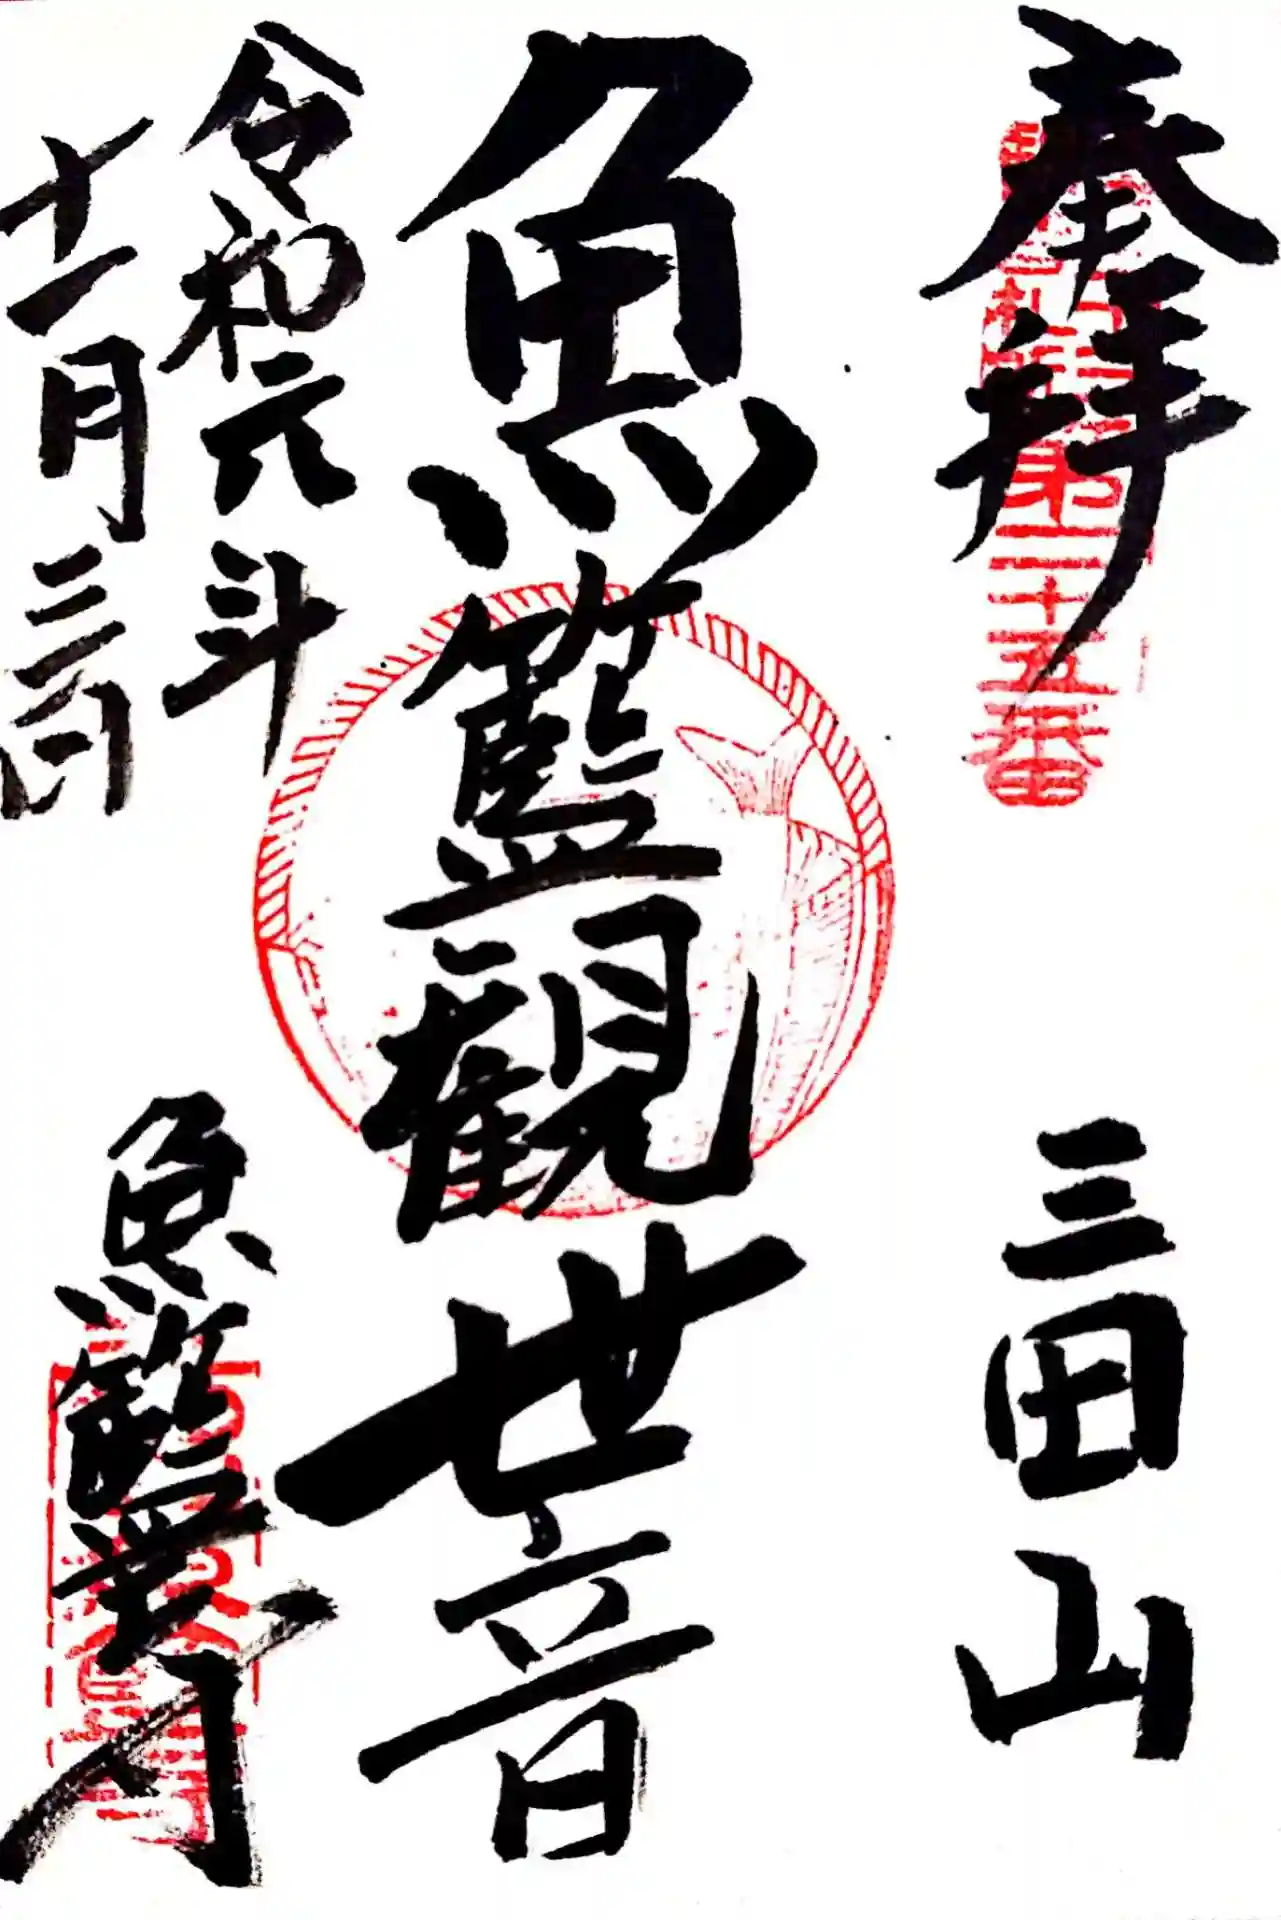 奉拝
三田山
魚籃観世音
令和元年
十一月三日
魚籃寺
第二十五番